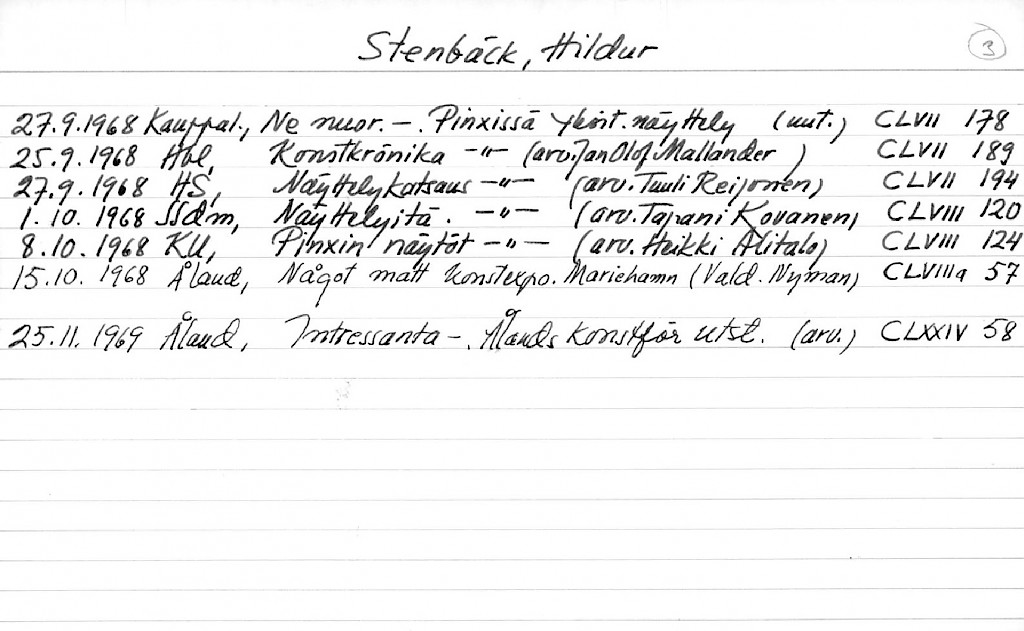 Stenbäck, Hildur
3
27.9.1968 Kauppal., Ne nuor. –. Pinxissä yhteist. näyttely (uut.) CLVII 178
25.9.1968 Hbl, Konstkrönika –"– (arv. Jan Olof Mallander) CLVII 189
27.9.1968 HS, Näyttelykatsaus –"– (arv. Tuuli Reijonen) CLVII 194
1.10.1968 SSdm, Näyttelyitä. –"– (arv. Tapani Kovanen) CLVIII 120
8.10.1968 KU, Pinxin näytöt –"– (arv. Heikki Alitalo) CLVIII 124
15.10.1968 Åland, Något matt konstexpo. Mariehamn (Vald. Nyman) CLVIIIa 57
25.11.1969 Åland, Intressanta –. Ålands konstför utst. (arv.) CLXXIV 58